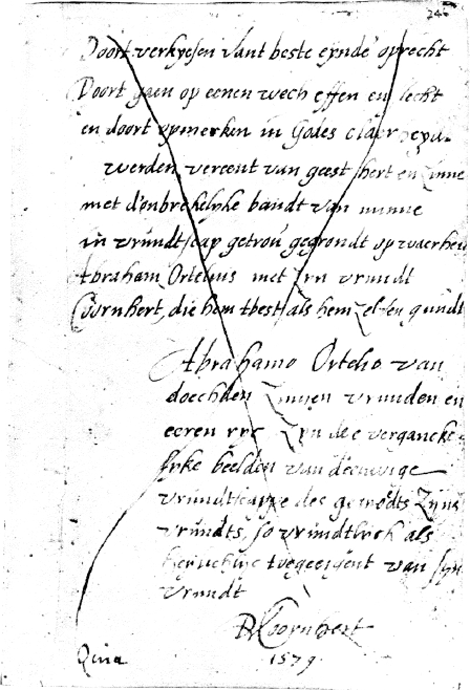 246
Doort verkyesen vant beste eynde oprecht
Doort gaen op eenen wech effen en lecht
en doort opmerken in Godes claer
werden vereent van geest hert en Zinne
met d'onbrekelyke bandt van minne
in vrundtscap getrou gegrondt op waerheid
Abraham Ortelius met Zyn vrundt
Coornhert, die hem tbest als hem Zelven gundt
Abrahamo Ortelio van
doechden Zinnen vrunden en
eeren Zyn dese verganckе-
lyke beelden van d'eeuwige
vrundtscappe des gemoedts Zyns
vrundts, so vrundtlick als
toegeeigent van syn
vrundt
Coornhert
1579